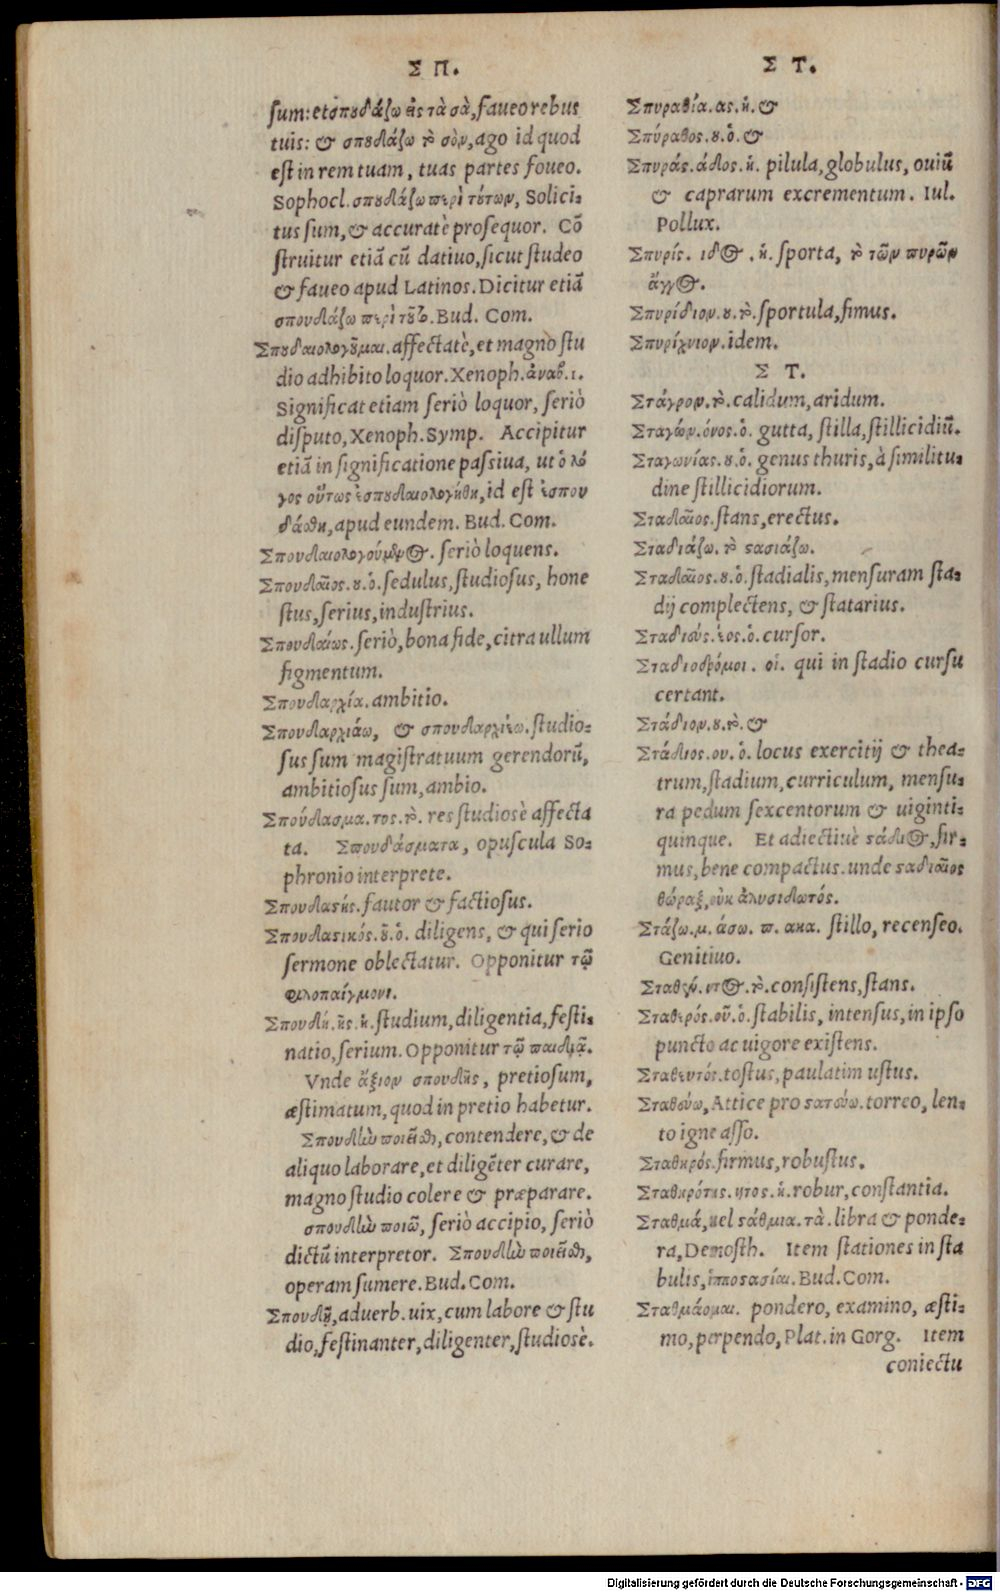 Σ Π.
sum: et σπουδάζω εἰς τὰ σὰ, faueo rebus
tuis: & σπουδάζω τὸ σὸν, ago id quod
est in rem tuam, tuas partes foueo.
Sophocl. σπουδάζω περὶ τούτων, Solici-
tus sum, & accuratè prosequor. Cõ
struitur etiã cũ datiuo, sicut studeo
& faueo apud Latinos. Dicitur etiã
σπουδάζω περὶ τοῦτο. Bud. Com.
Σπουδαιολογοῦμαι. affectatè, et magno stu
dio adhibito loquor. Xenoph. ἀναβ. ι.
Significat etiam seriò loquor, seriò
disputo, Xenoph. Symp. Accipitur
etiã in significatione passiua, ut ὁ λό
γος οὕτως ἐσπουδαιολογήθη, id est ἐσπου
δάσθη, apud eundem. Bud. Com.
Σπουδαιολογούμενος. seriò loquens.
Σπουδαῖος. ου. ὁ. sedulus, studiosus, hone
stus, serius, industrius.
Σπουδαίως. seriò, bona fide, citra ullum
figmentum.
Σπουδαρχία. ambitio.
Σπουδαρχιάω, & σπουδαρχιέω. studio-
sus sum magistratuum gerendorũ,
ambitiosus sum, ambio.
Σπούδασμα. τος. τὸ. res studiosè affecta
ta. Σπουδάσματα, opuscula So-
phronio interprete.
Σπουδαστής. fautor & factiosus.
Σπουδαστικός. οῦ. ὁ. diligens, & qui serio
sermone oblectatur. Opponitur τῷ
φιλοπαίγμονι.
Σπουδή. ῆς. ἡ. studium, diligentia, festi-
natio, serium. Opponitur τῷ παιδιᾷ.
Vnde ἄξιον σπουδῆς, pretiosum,
æstimatum, quod in pretio habetur.
Σπουδὴν ποιεῖσθαι, contendere, & de
aliquo laborare, et diligẽter curare,
magno studio colere & præparare.
σπουδὴν ποιῶ, seriò accipio, seriò
dictũ interpretor. Σπουδὴν ποιεῖσθαι,
operam sumere. Bud. Com.
Σπουδῇ, aduerb. uix, cum labore & stu
dio, festinanter, diligenter, studiosè.
Σ Τ.
Σπυραθία. ας. ἡ. &
Σπύραθος. ου. ὁ. &
Σπυράς. άδος. ἡ. pilula, globulus, ouiũ
& caprarum excrementum. Iul.
Pollux.
Σπυρίς. ιδος. ἡ. sporta, τὸ τῶν πυρῶν
ἄγγος.
Σπυρίδιον. ου. τὸ. sportula, fimus.
Σπυρίχνιον. idem.
Σ Τ.
Στάγρον. τὸ. calidum, aridum.
Σταγών. όνος. ὁ. gutta, stilla, stillicidiũ.
Σταγωνίας. ου. ὁ. genus thuris, à similitu-
dine stillicidiorum.
Σταδαῖος. stans, erectus.
Σταδιάζω. τὸ στασιάζω.
Σταδιαῖος. ου. ὁ. stadialis, mensuram sta-
dij complectens, & statarius.
Σταδιεύς. έος. ὁ. cursor.
Σταδιοδρόμοι. οἱ. qui in stadio cursu
certant.
Στάδιον. ου. τὸ. &
Στάδιος. ου. ὁ. locus exercitij & thea-
trum, stadium, curriculum, mensu-
ra pedum sexcentorum & uiginti-
quinque. Et adiectiuè στάδιος, fir-
mus, bene compactus. unde σταδιαῖος
θώραξ, οὐκ ἁλυσιδωτός.
Στάζω. μ. άσω. π. ακα. stillo, recenseo.
Genitiuo.
Σταθέν. ντος. τὸ. consistens, stans.
Σταθερός. οῦ. ὁ. stabilis, intensus, in ipso
puncto ac uigore existens.
Σταθευτός. tostus, paulatim ustus.
Σταθεύω, Attice pro στατεύω. torreo, len-
to igne asso.
Σταθηρός. firmus, robustus.
Σταθηρότης. ητος. ἡ. robur, constantia.
Σταθμά, uel στάθμια. τὰ. libra & ponde-
ra, Demosth. Item stationes in sta
bulis, ἱπποστασίαι. Bud. Com.
Σταθμάομαι. pondero, examino, æsti-
mo, perpendo, Plat. in Gorg. Item
coniectu
Digitalisierung gefördert durch die Deutsche Forschungsgemeinschaft - DFG